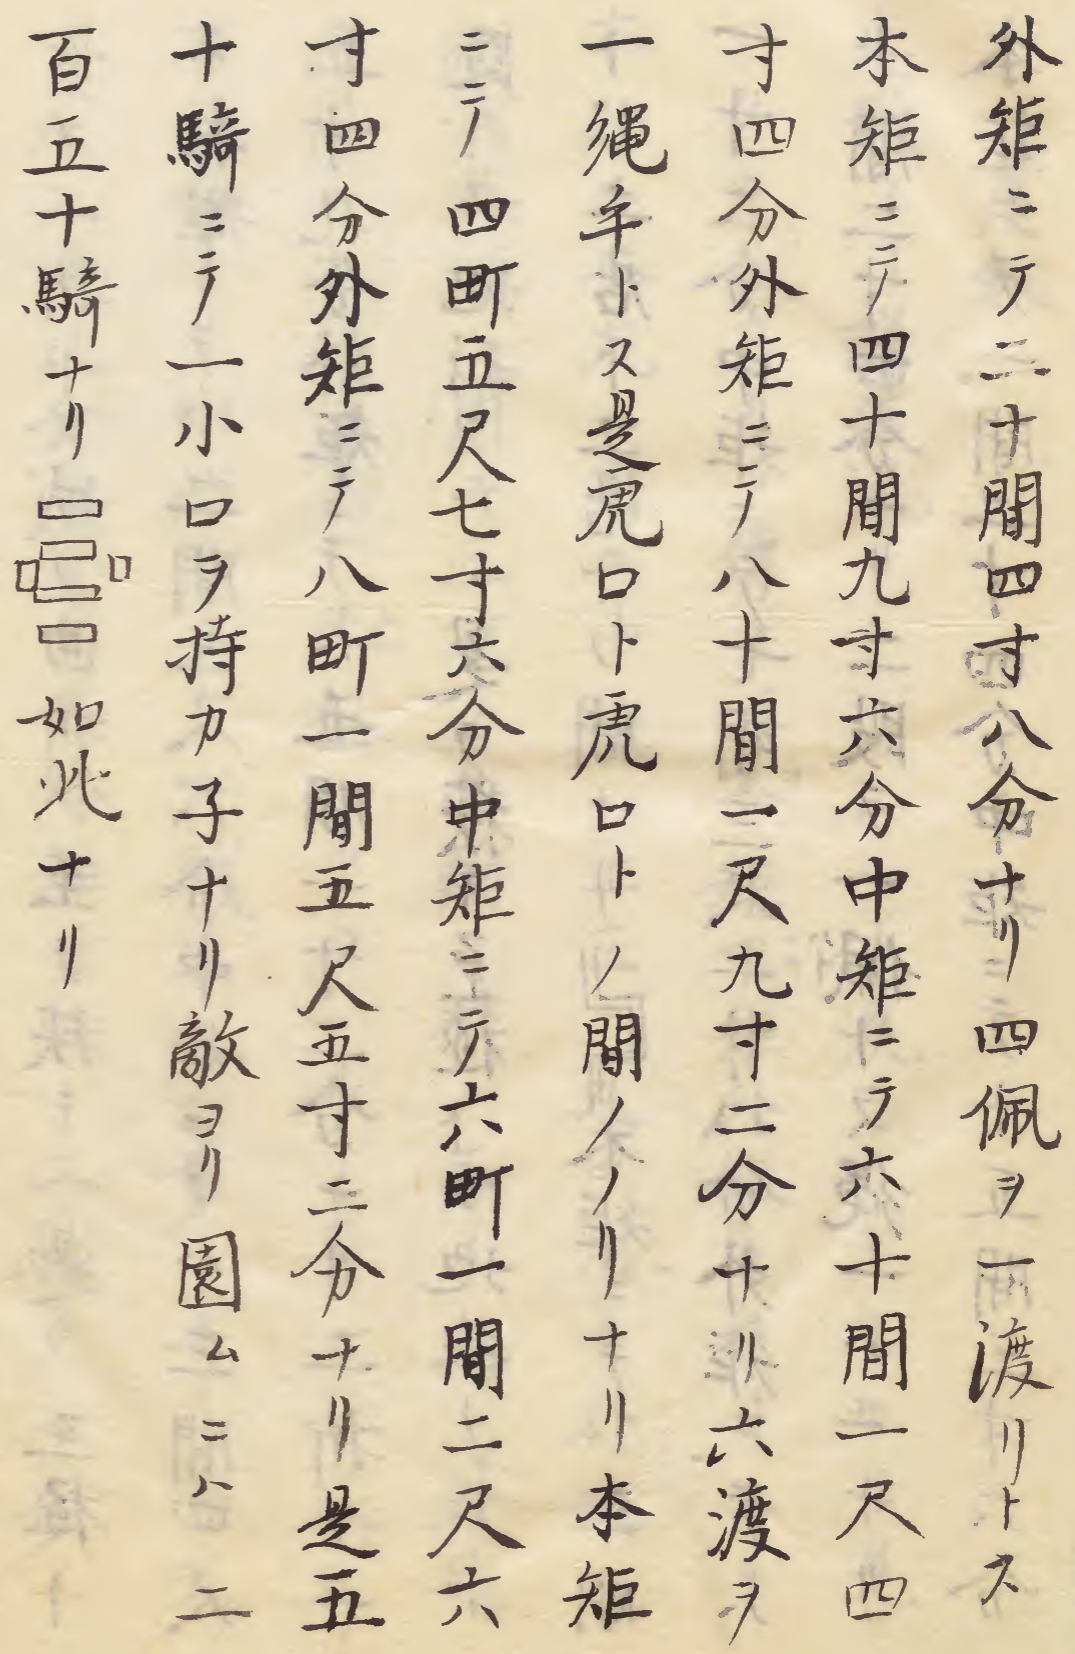 外矩ニテ二十間四寸八分ナリ四佩ヲ一渡リトス
本矩ニテ四十間九寸六分中矩ニテ六十間一尺四
寸四分外矩ニテ八十間一尺九寸二分ナリ六渡ヲ
一縄年トス是虎口ト虎口トノ間ノノリナリ本矩
ニテ四町五尺七寸六分中矩ニテ六町一間二尺六
寸四分外矩ニテ八町一間五尺五寸二分ナリ是五
十騎ニテ一小口ヲ持カ子ナリ敵ヨリ園ムニハ二
百五十騎ナリ如此ナリ